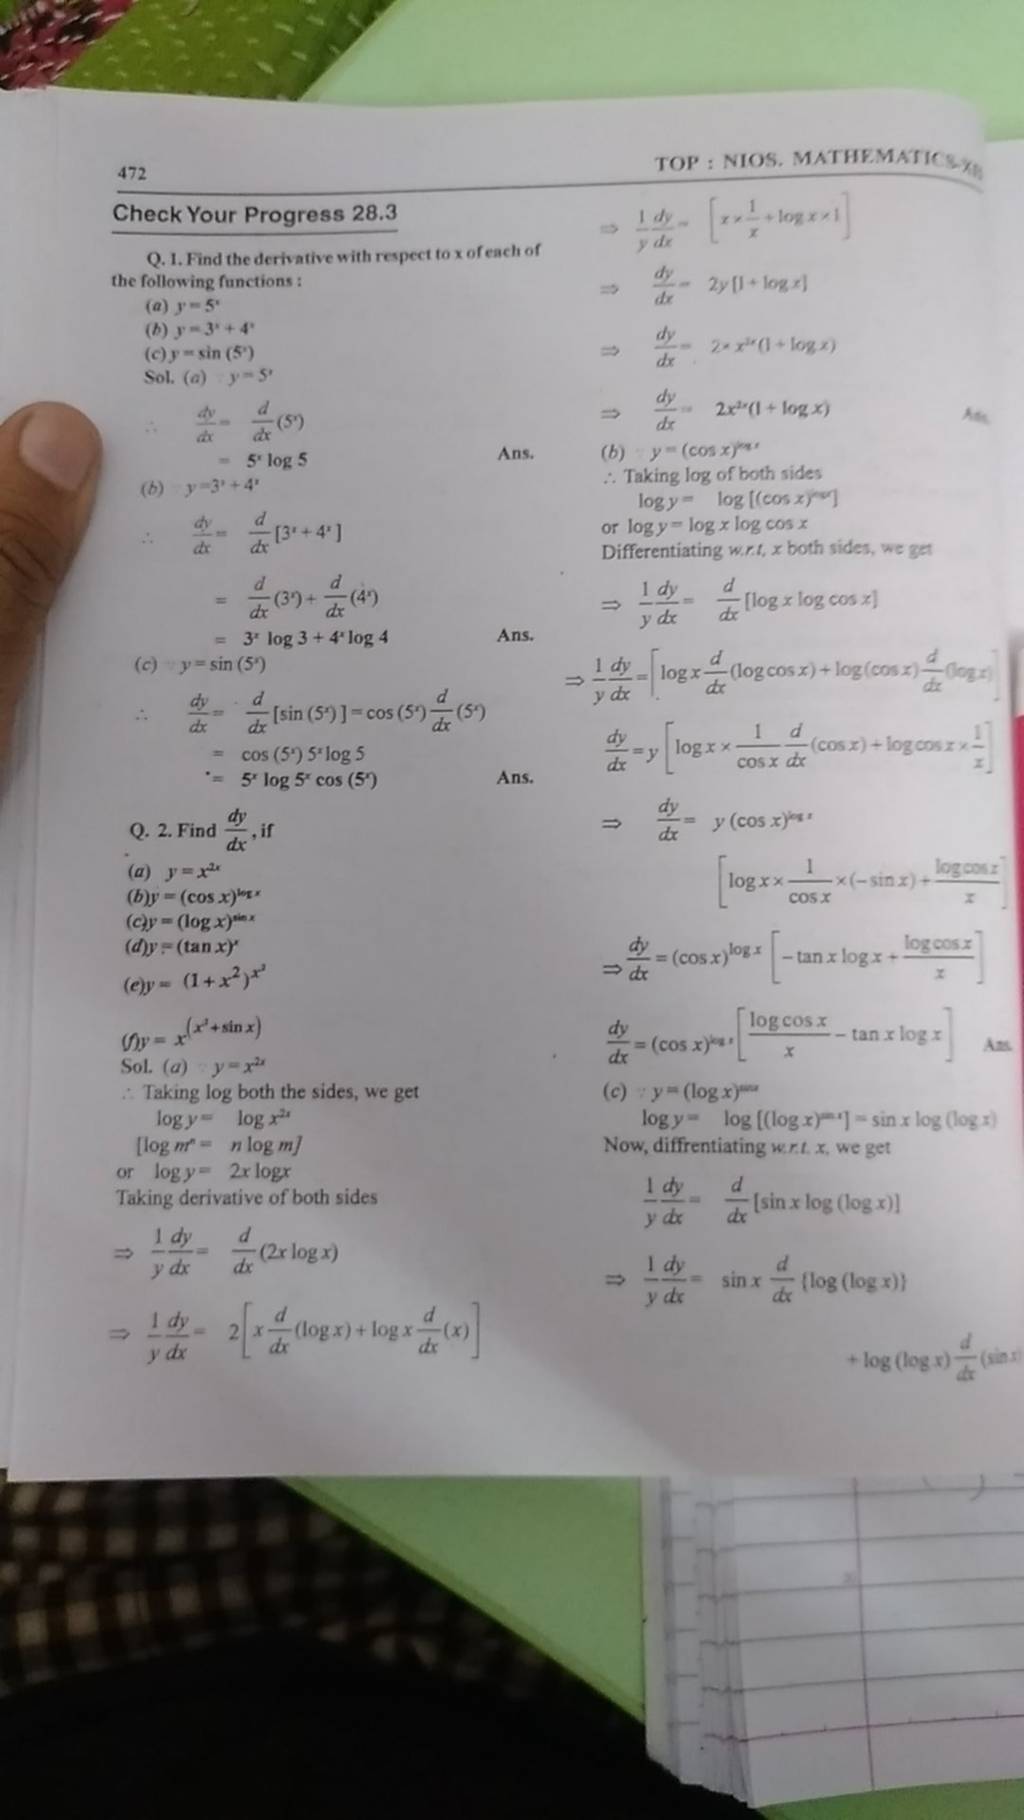 472
TOP : NIOS. MATHEMATICS-XII
Check Your Progress 28.3
Q. 1. Find the derivative with respect to x of each of
the following functions :
(a) y = 5ˣ
(b) y = 3ˣ + 4ˣ
(c) y = sin (5ˣ)
Sol. (a) ∵ y = 5ˣ
∴ dy/dx = d/dx (5ˣ)
= 5ˣ log 5 Ans.
(b) ∵ y = 3ˣ + 4ˣ
∴ dy/dx = d/dx [3ˣ + 4ˣ]
= d/dx (3ˣ) + d/dx (4ˣ)
= 3ˣ log 3 + 4ˣ log 4 Ans.
(c) ∵ y = sin (5ˣ)
∴ dy/dx = d/dx [sin (5ˣ)] = cos (5ˣ) d/dx (5ˣ)
= cos (5ˣ) 5ˣ log 5
= 5ˣ log 5ˣ cos (5ˣ) Ans.
Q. 2. Find dy/dx, if
(a) y = x²ˣ
(b) y = (cos x)^(log x)
(c) y = (log x)^(sin x)
(d) y = (tan x)ˣ
(e) y = (1 + x²)^(x²)
(f) y = x^(x² + sin x)
Sol. (a) ∵ y = x²ˣ
∴ Taking log both the sides, we get
log y = log x²ˣ
[log mⁿ = n log m]
or log y = 2x logx
Taking derivative of both sides
⇒ 1/y dy/dx = d/dx (2x log x)
⇒ 1/y dy/dx = 2[x d/dx (log x) + log x d/dx (x)]
⇒ 1/y dy/dx = [x × 1/x + log x × 1]
⇒ dy/dx = 2y [1 + log x]
⇒ dy/dx = 2 × x²ˣ (1 + log x)
⇒ dy/dx = 2x²ˣ (1 + log x) Ans.
(b) ∵ y = (cos x)^(log x)
∴ Taking log of both sides
log y = log [(cos x)^(log x)]
or log y = log x log cos x
Differentiating w.r.t, x both sides, we get
⇒ 1/y dy/dx = d/dx [log x log cos x]
⇒ 1/y dy/dx = [log x d/dx (log cos x) + log (cos x) d/dx (log x)]
dy/dx = y [log x × 1/cos x d/dx (cos x) + log cos x × 1/x]
⇒ dy/dx = y (cos x)^(log x)
[log x × 1/cos x × (−sin x) + log cos x/x]
⇒ dy/dx = (cos x)^(log x) [−tan x log x + log cos x/x]
dy/dx = (cos x)^(log x) [log cos x/x − tan x log x] Ans.
(c) ∵ y = (log x)^(sin x)
log y = log [(log x)^(sin x)] = sin x log (log x)
Now, diffrentiating w.r.t. x, we get
1/y dy/dx = d/dx [sin x log (log x)]
⇒ 1/y dy/dx = sin x d/dx {log (log x)}
+ log (log x) d/dx (sin x)